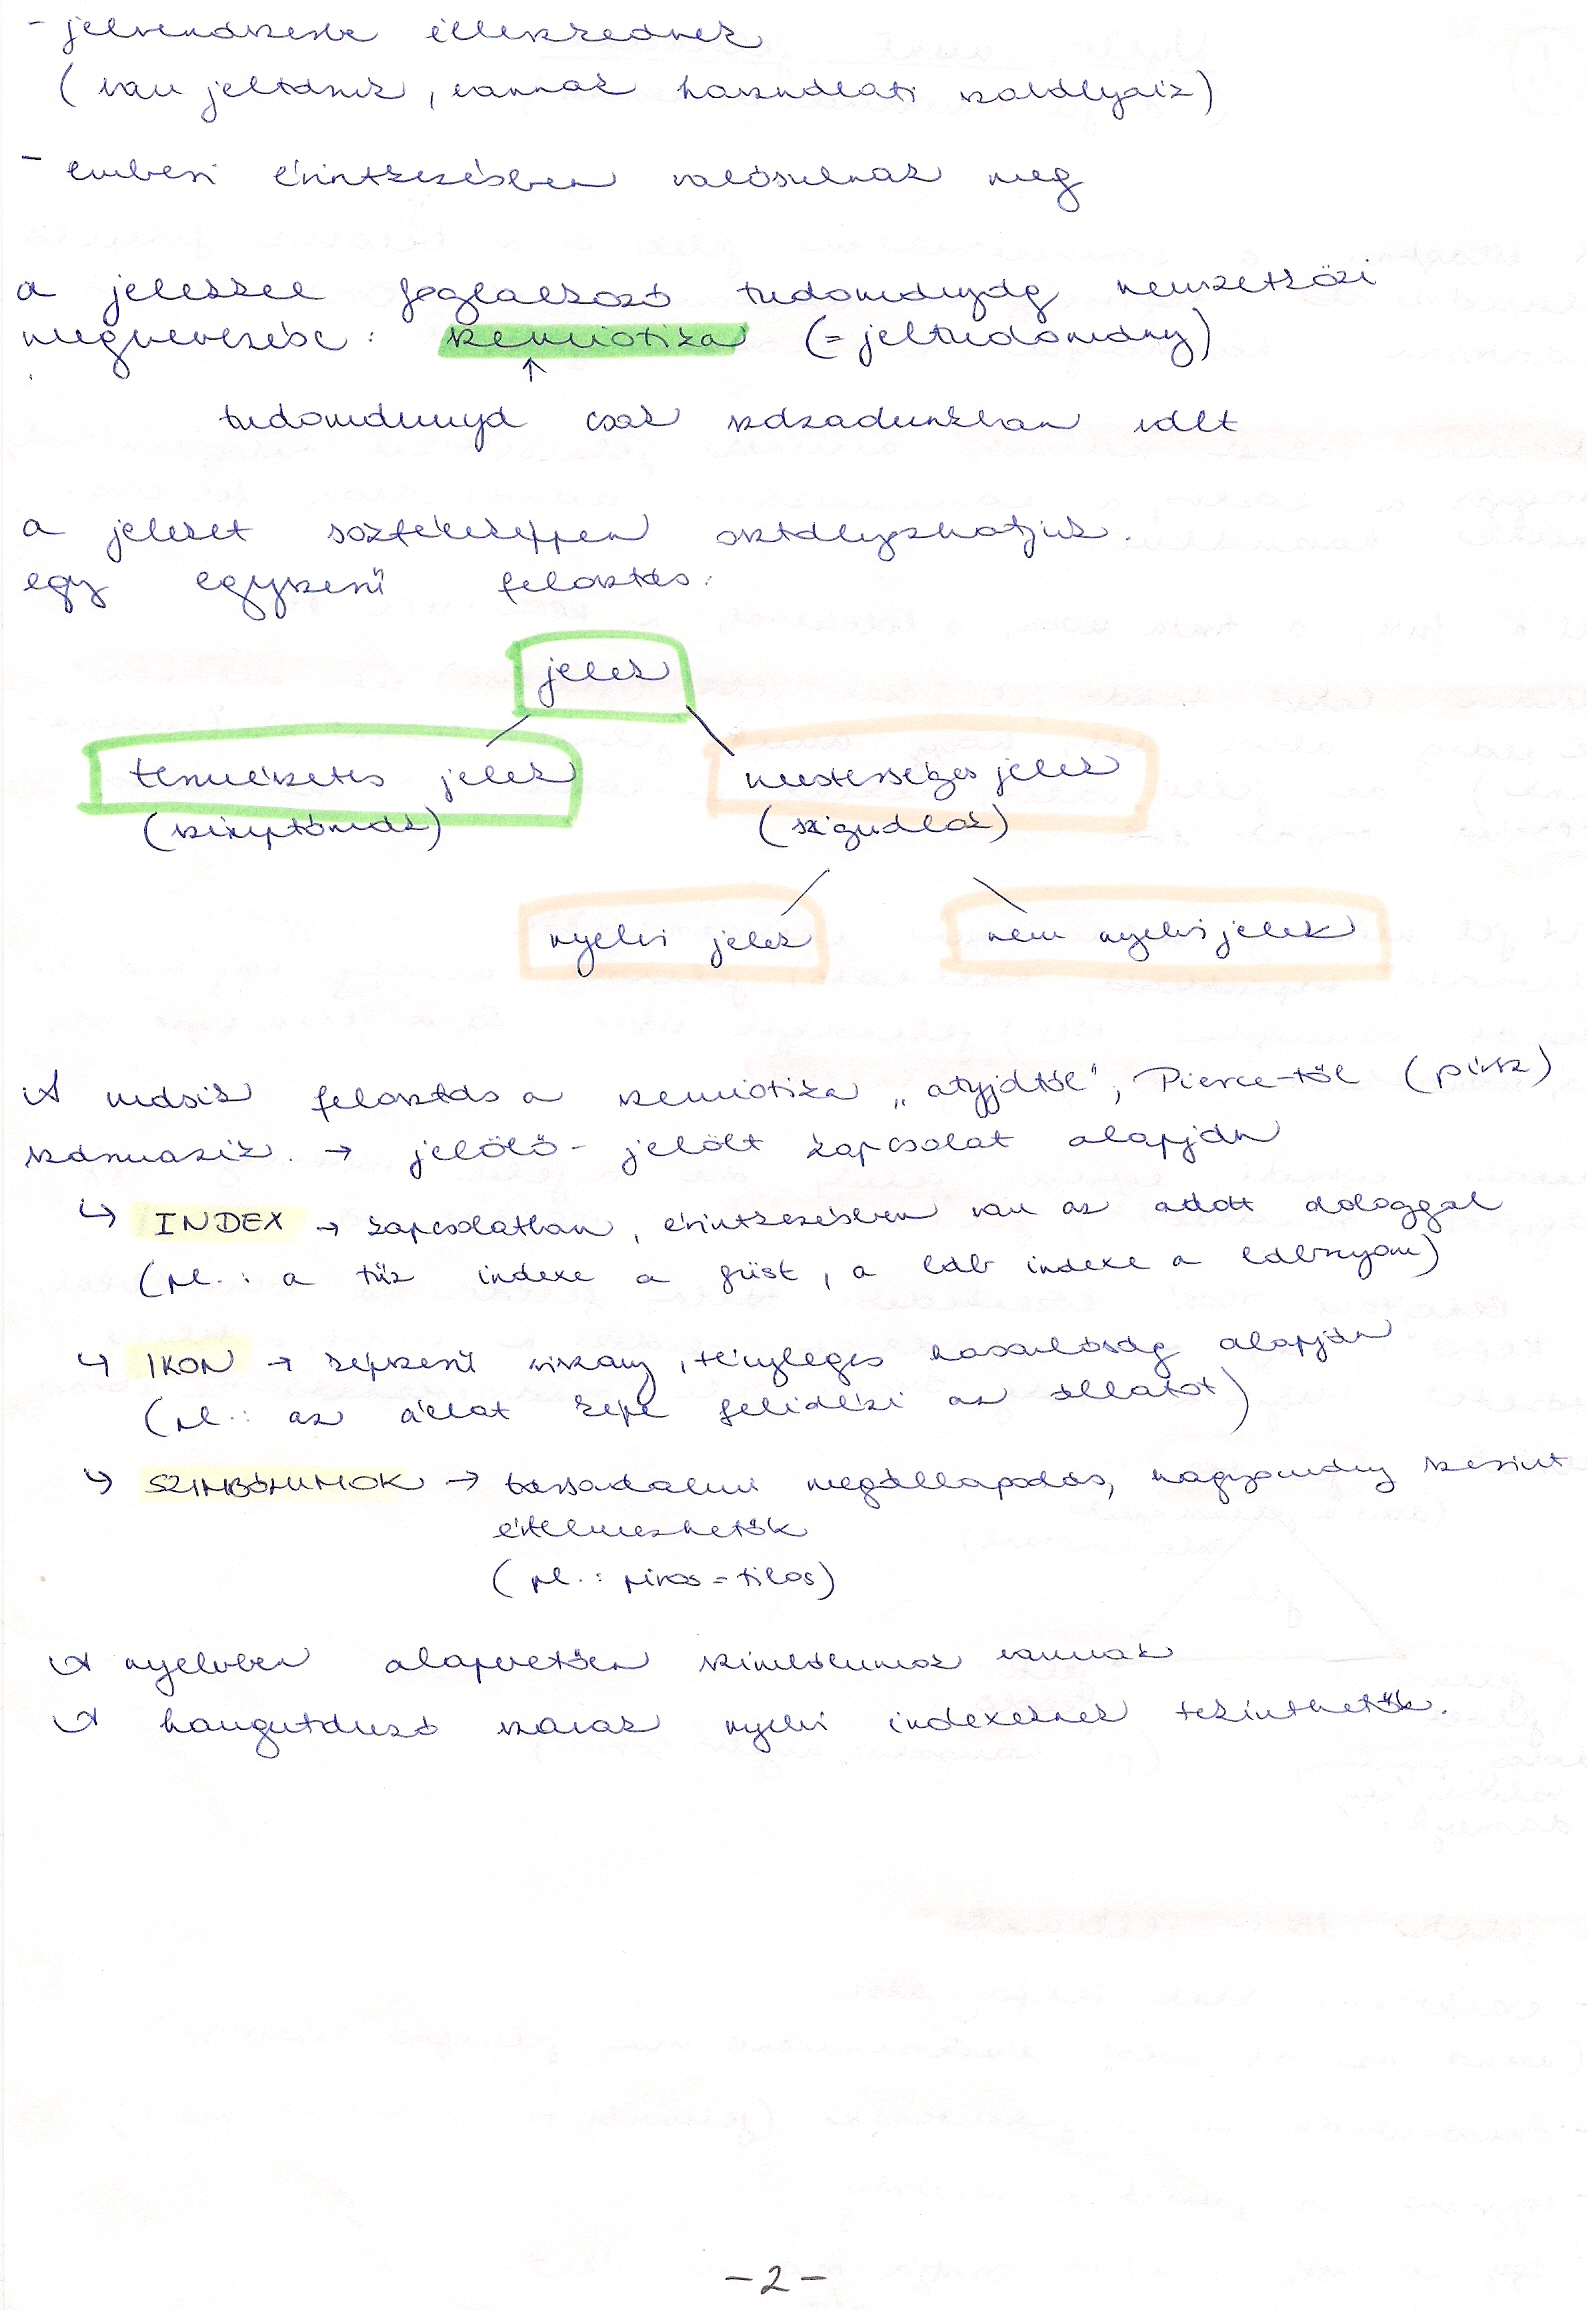 - jelrendszerbe illeszkednek
(van jeltáruk, vannak használati szabályaik)
- emberi érintkezésben valósulnak meg
a jelekkel foglalkozó tudományág nemzetközi
megnevezése: szemiotika (= jeltudomány)
↑
tudománnyá csak századunkban vált
a jeleket sokféleképpen osztályozhatjuk.
egy egyszerű felosztás:
jelek
természetes jelek mesterséges jelek
(szimptómák) (szignálok)
nyelvi jelek nem nyelvi jelek
A másik felosztás a szemiotika „atyjától", Pierce-től (pírsz)
származik. → jelölő - jelölt kapcsolat alapján
↳ INDEX → kapcsolatban, érintkezésben van az adott dologgal
(pl.: a tűz indexe a füst, a láb indexe a lábnyom)
↳ IKON → képszerű viszony, tényleges hasonlóság alapján
(pl.: az állat képe felidézi az állatot)
↳ SZIMBÓLUMOK → társadalmi megállapodás, hagyomány szerint
értelmezhetők
(pl.: piros = tilos)
A nyelvben alapvetően szimbólumok vannak
A hangutánzó szavak nyelvi indexeknek tekinthetők.
- 2 -